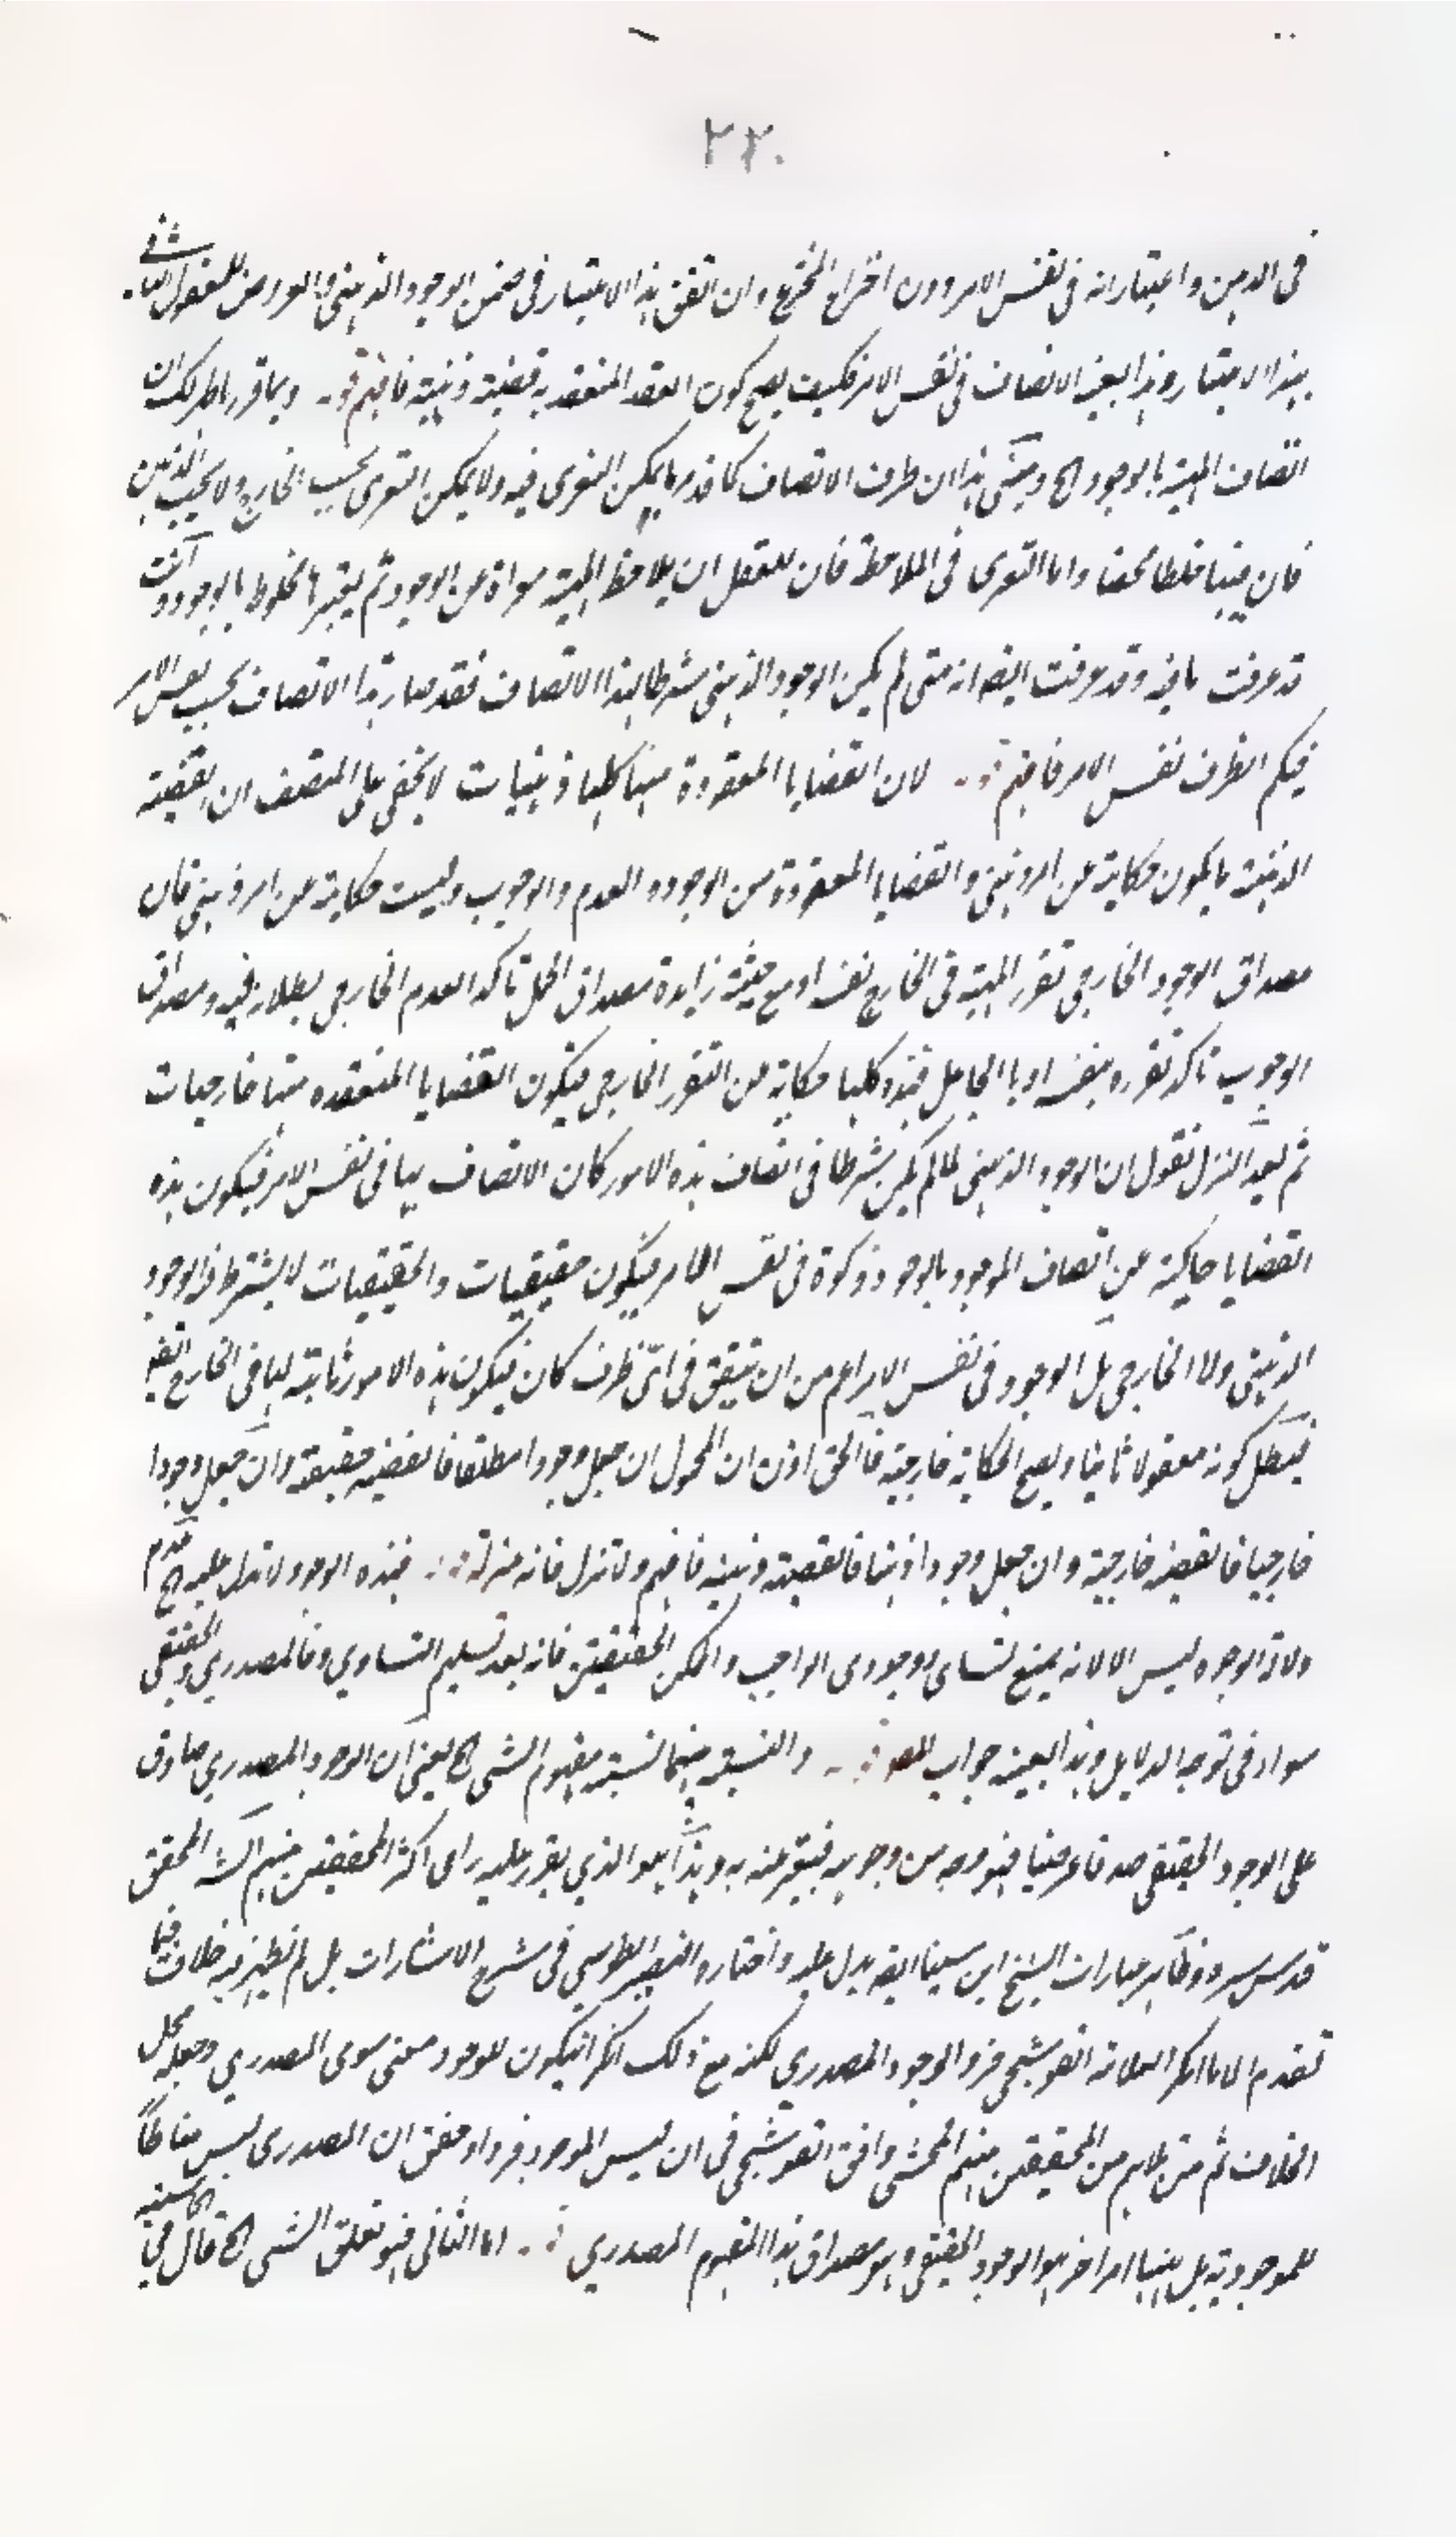 ٢٢٠
فى الذهن واعتبار انه فى نفس الامر دون اختراع المخترع وان اتفق هذا الاعتبار فى ضمن الوجود الذهنى والعروض للمعقول الثانى فى
بهذا الاعتبار وهذا بعينه الاتصاف فى نفس الامر فكيف يصح كون العقد المنعقد به قضية ذهنية فافهم قوله وبما قررنا ظهر لك ان
اتصاف المهية بالوجود الخ ومبنى هذا ان ظرف الاتصاف كما قدر ما يمكن التعرى فيه ولا يمكن التعرى بحسب الخارج ولا بحسب الذهن
فان فيهما خلطا محضا واما التعرى فى الملاحظة فان للعقل ان يلاحظ المهية معراة عن الوجود ثم يعتبرها مخلوطا بالوجود وانت
قد عرفت ما فيه وقد عرفت ايضا انه متى لم يكن الوجود الذهنى شرطا لهذا الاتصاف فقد صار هذا الاتصاف بحسب نفس الامر
فيكم الظرف نفس الامر فافهم قوله لان القضايا المعقودة منها كلها ذهنيات لا يخفى على المنصف ان القضية
الذهنية ما يكون حكاية عن امر ذهنى والقضايا المعقودة من الوجود والعدم والوجوب وليست حكاية عن امر ذهنى فان
مصداق الوجود الخارجى تقرر المهية فى الخارج بنفسها او مع حيثية زايدة مصداق الحمل تاكد العدم الخارجى بطلانه فيه ومصداق
الوجوب تاكد تقرره بنفسه او بالجاعل فهذه كلها حكاية عن التقرر الخارجى فيكون القضايا المنعقده منها خارجيات
ثم بعد التنزل نقول ان الوجود الذهنى لما لم يكن شرطا فى اتصاف هذه الامور كان الاتصاف بها فى نفس الامر فيكون هذه
القضايا حاكية عن اتصاف الموجود بالوجود وذكوة فى نفس الامر فيكون حقيقيات والحقيقيات لا يشترط فيها الوجود
الذهنى ولا الخارجى بل الوجود فى نفس الامر اعم من ان يتحقق فى اىّ ظرف كان فيكون هذه الامور ثابتة لها فى الخارج ايضا
فيبطل كونه معقولا ثانيا ويصح الحكاية خارجية فالحق اذن ان المحمول ان جعل وجودا مطلقا فالقضية حقيقية وان جعل وجودا
خارجيا فالقضية خارجية وان جعل وجودا ذهنيا فالقضية ذهنية فافهم ولا تزل فانه مزلة قوله فهذه الوجوه لا تدل عليه الخ عدم
دلالة الوجوه ليس الا لانه يمنع تساوى وجودى الواجب والممكن الحقيقيين فانه بعد تسليم التساوى فالمصدرى والحقيقى
سواء فى توجه الدلايل وهذا بعينه جواب المصـ قوله والنسبة بينهما نسبة مفهوم الشى الخ يعنى ان الوجود المصدرى صادق
على الوجود الحقيقى صدقا عرضيا فهو وجه من وجوهه فيعبر عنه به وهذا هو الذى يقرر عليه راى اكثر المحققين منهم السيد المحقق
قدس سره وظاهر عبارات الشيخ ابن سينا ايضا يدل عليه واختاره النصير الطوسى فى شرح الاشارات بل لم يظهر فيه خلاف فيما
تقدم الا ما انكر العلامة القوشجى فرد الوجود المصدرى لكنه مع ذلك انكر ان يكون للوجود معنى سوى المصدرى وجعله محل
الخلاف ثم من تلاهم من المحققين منهم المحشى وافق القوشجى فى ان ليس الموجود فردا وحقق ان المصدرى ليس مناطا
للموجودية بل ههنا امر اخر هو الوجود الحقيقى وهو مصداق هذا المفهوم المصدرى قوله اما الثانى فهو تعلق الشى الخ قال فى الحاشية